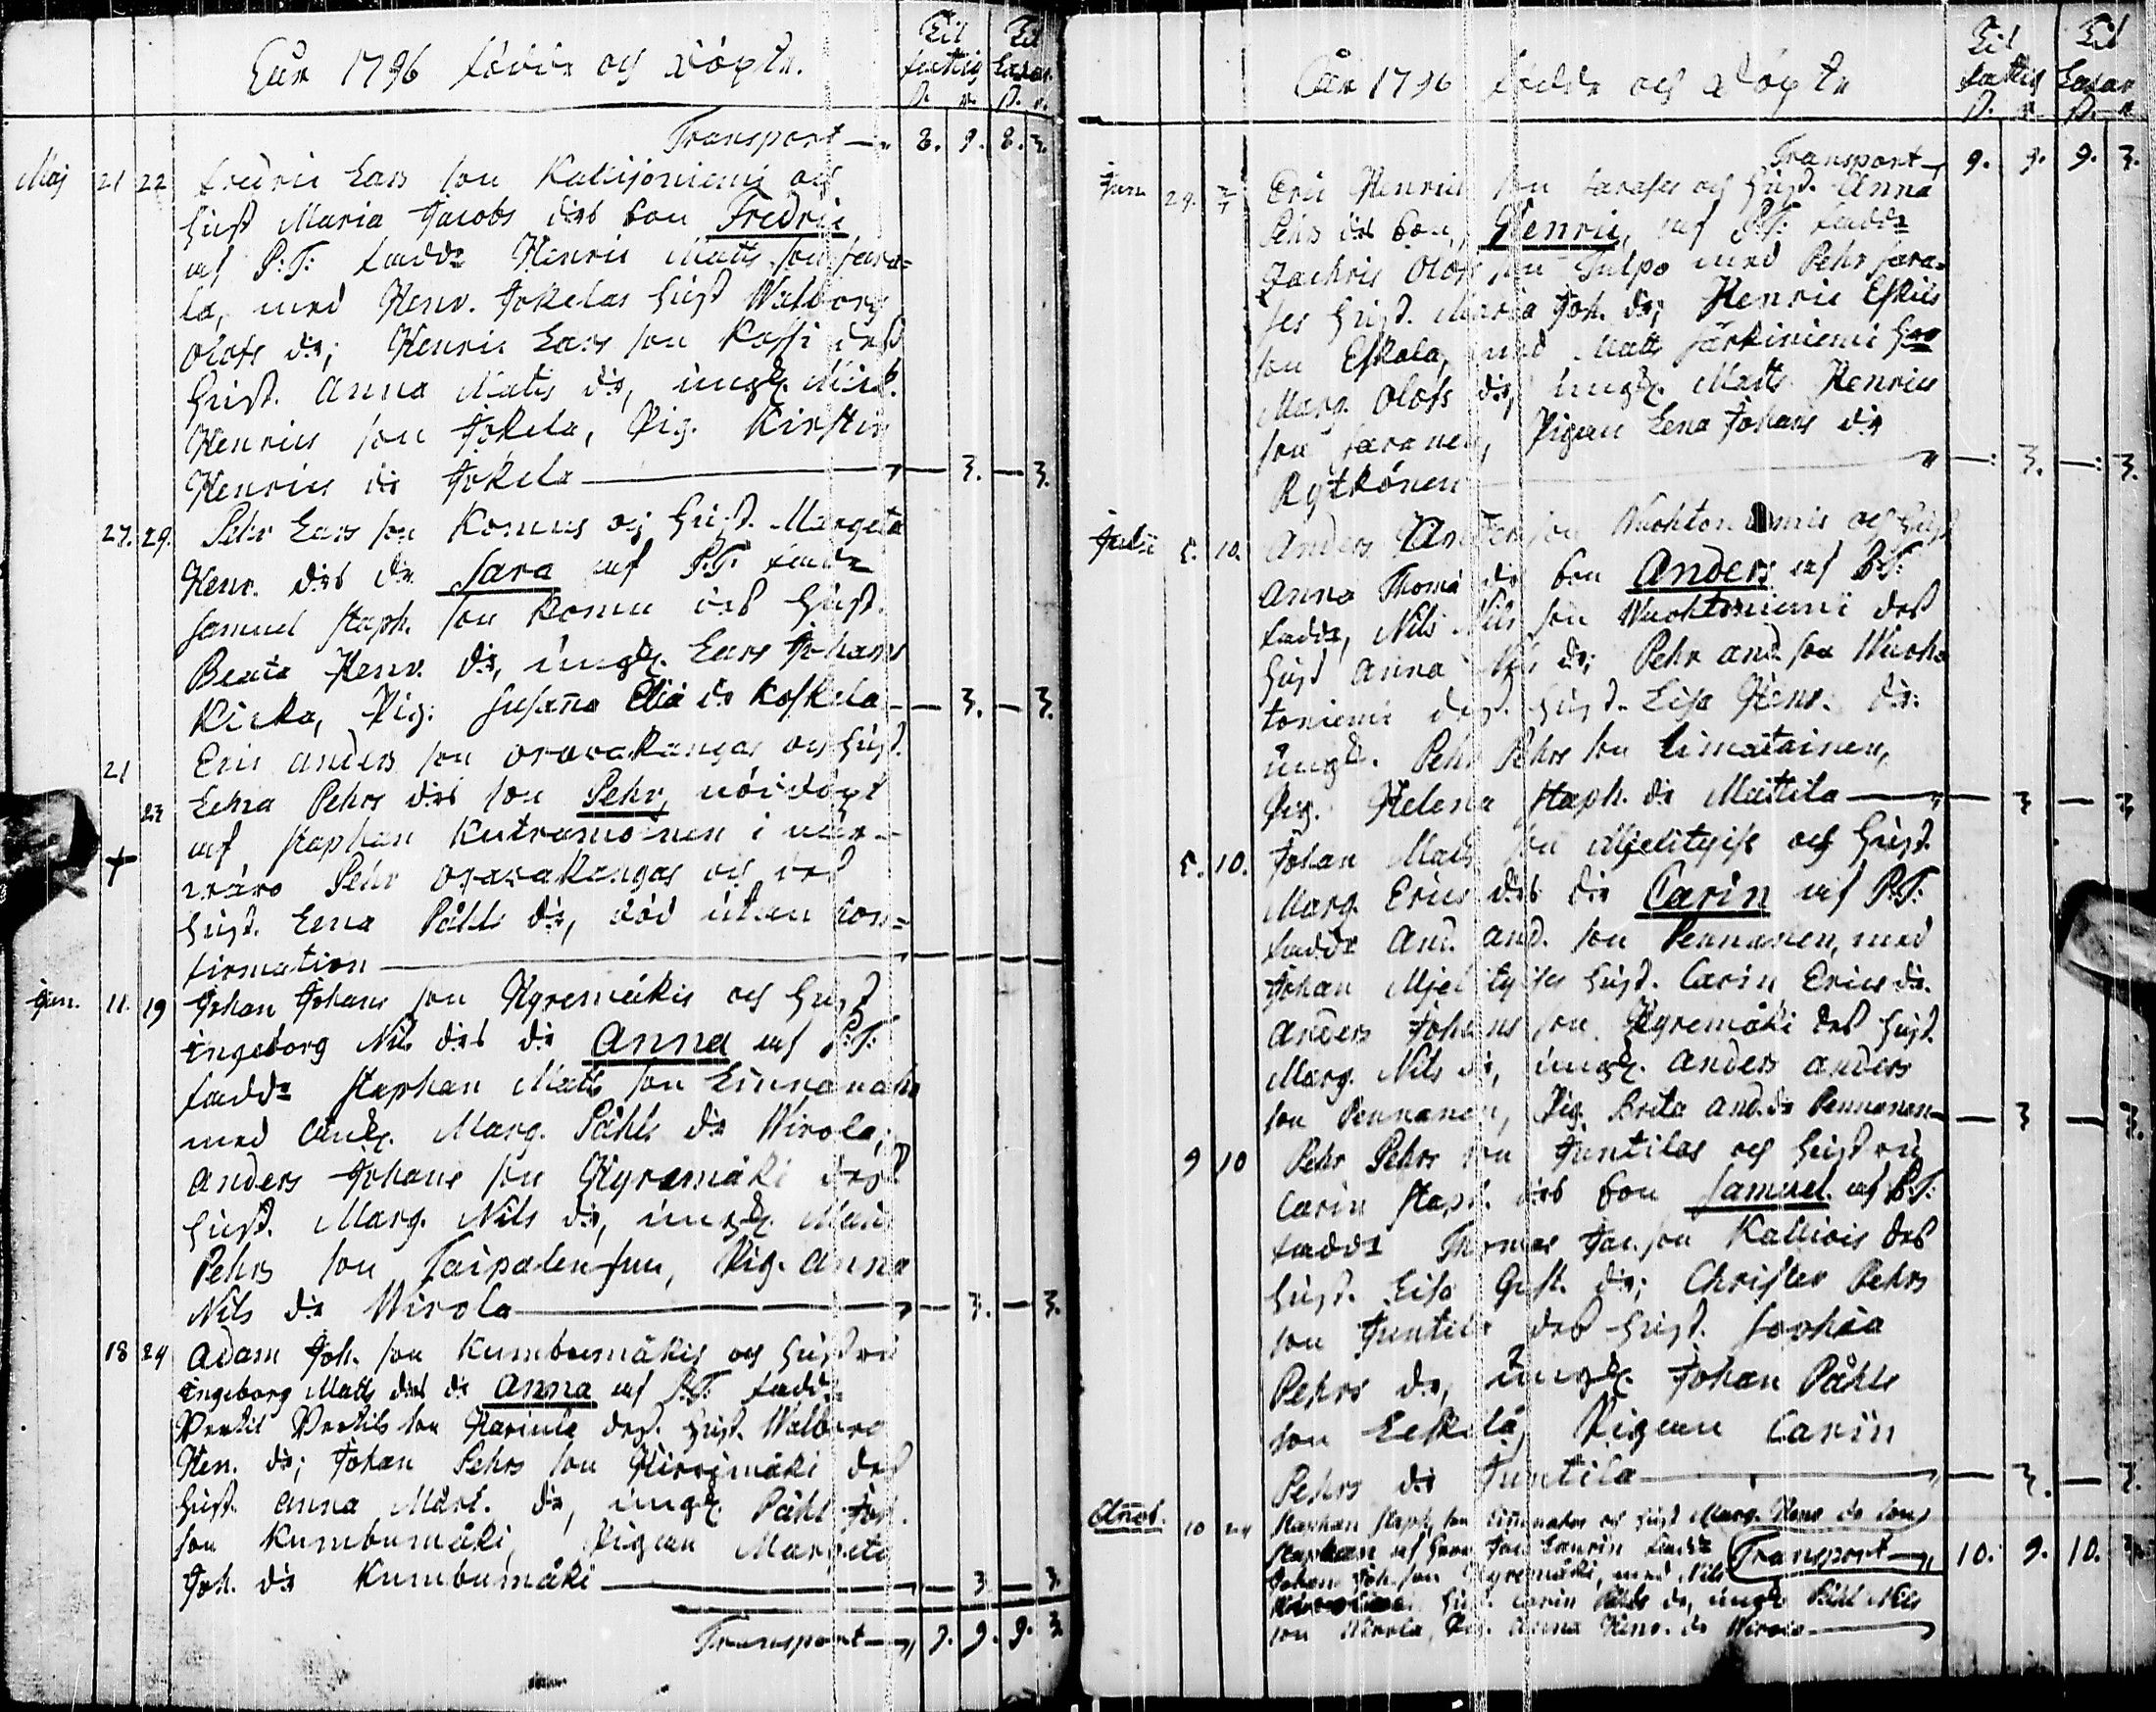 Åhr 1796 födde och döpte.
Til fattig Til Lasar
Transport 8. 9. 8. 3.
Maj 21 22 Fredric Lars son Kallisoniemi och
Hust Maria Jacobs drs Son Fredric
af P:T: Fadd. Henric Matts son Sara=
la, med Henr. Jokelas Hust Walborg
Olofs dr; Henric Lars son Kossi dess
Hust. Anna Matts dr, ungk. Mick.
Henrics son Jokela, Pig. Kirstin
Henrics dr Jokela 3. 3.
27. 29. Pehr Lars son Komus och Hust. Margeta
Henr. drs dr Sara af P.T. Fadd
Samuel Staph. son Komu dess Hust.
Beata Henr. dr, ungk. Lars Johans
Kicka, Pig: Susanna Eliæ dr Koskela 3. 3.
21 Eric Anders son Oravakangas och Hust.
23 Lena Pehrs drs son Pehr, nöddöpt
af Staphan Kutramoinen i när=
+ waro Pehr Oravakangas och dess
Hust. Lena Påhls dr, död utan Con=
firmation
Jun. 11. 19 Johan Johans son Hyremäkis och Hust
Ingeborg Nils drs dr Anna af P.T:
Fadd Staphan Matts son Linnanaho
med Enk. Marg. Påhls dr Wirola;
Anders Johans son Hyremäki dess
Hust. Marg. Nils dr, ungk. Matts
Pehrs son Taipalensuu, Pig. Anna
Nils dr Wirola 3. 3.
18 24 Adam Joh. son Kumbumäkis och Hustru
Ingeborg Matts drs dr Anna af P.T. Fadd
Pertil Pertils son Harinta dess Hust. Walborg
Hen. dr; Johan Pehrs son Hirsimäki dess
Hust. Anna Märt. dr, ungk. Påhl Joh.
son Kumbumäki, Pigan Margeta
Joh. dr Kumbumäki 3 3.
Transport 9. 9. 9. 3
Åhr 1796 födde och döpte
Til fattig Til Lasar
Transport 9. 9. 9. 3.
Jun. 29. Eric Henrics son Sarases och Hust. Anna
Pehrs drs Son, Henric, af P.T: Fadd
Zachris Olofs son Tulpo med Pehr Sara=
ses Hust. Maria Joh. dr; Henric Eskils
son Eskola, med Matts Särkiniemi Hus
Marg. Olofs dr, ungk. Matts Henrics
son Saranen, Pigan Lena Johans dr
Rytkönen 3. 3.
Julii 5. 10. Anders Anders son Wuohtoniemis och Hust
Anna Thomæ dr Son Anders af P.T:
Fadd, Nils Nils son Wuohtoniemi dess
Hust Anna Nils dr; Pehr And. son Wuoh=
toniemi dess Hust. Lisa Henr. dr:
ungk. Pehr Pehrs son Limatainen,
Pig. Helena Staph. dr Mattila 3 3
5. 10. Johan Matts son Mjelityises och Hust.
Marg. Erics drs dr Carin af P.T:
Fadd And. And. son Pennanen, med
Johan Mjelityises Hust. Carin Erics dr.
Anders Johans son Hyremäki dess Hust.
Marg. Nils dr, ungk. Anders Anders
son Pennanen, Pig. Brita And. dr Pennanen 3 3.
9 10 Pehr Pehrs son Juntilas och Hustru
Carin Staph. drs Son Samuel af P.T:
Fadd Thomas Jac. son Kalliois dess
Hust. Lisa Gust. dr; Christer Pehrs
son Juntila dess Hust. Sophia
Pehrs dr, ungk. Johan Påhls
son Leskelä, Pigan Carin
Pehrs dr Juntila 3. 3.
10 24 Staphan Staph. son Linnanahos och Hust Marg. Henr dr Son
Staphan af Laurin Fadd Transport 10. 9. 10.
Johan Joh. son Hyremäki, med Nils
Hust. Carin Påhls dr, ungk Påhl Nils
son Wirola, Pig. Anna Henr. dr Wirola